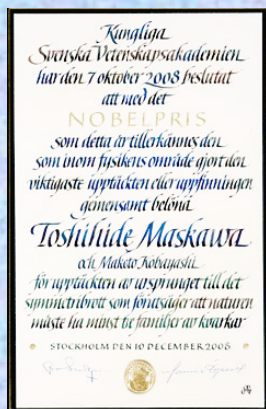 Kungliga
Svenska Vetenskapsakademien
har den 7 oktober 2008 beslutat
att med det
NOBELPRIS
som detta år tillerkännes den
som inom fysikens område gjort den
viktigaste upptäckten eller uppfinningen
gemensamt belöna
Toshihide Maskawa
och Makoto Kobayashi
för upptäckten av ursprunget till det
symmetribrott som förutsäger att naturen
måste ha minst tre familjer av kvarkar
STOCKHOLM DEN 10 DECEMBER 2008